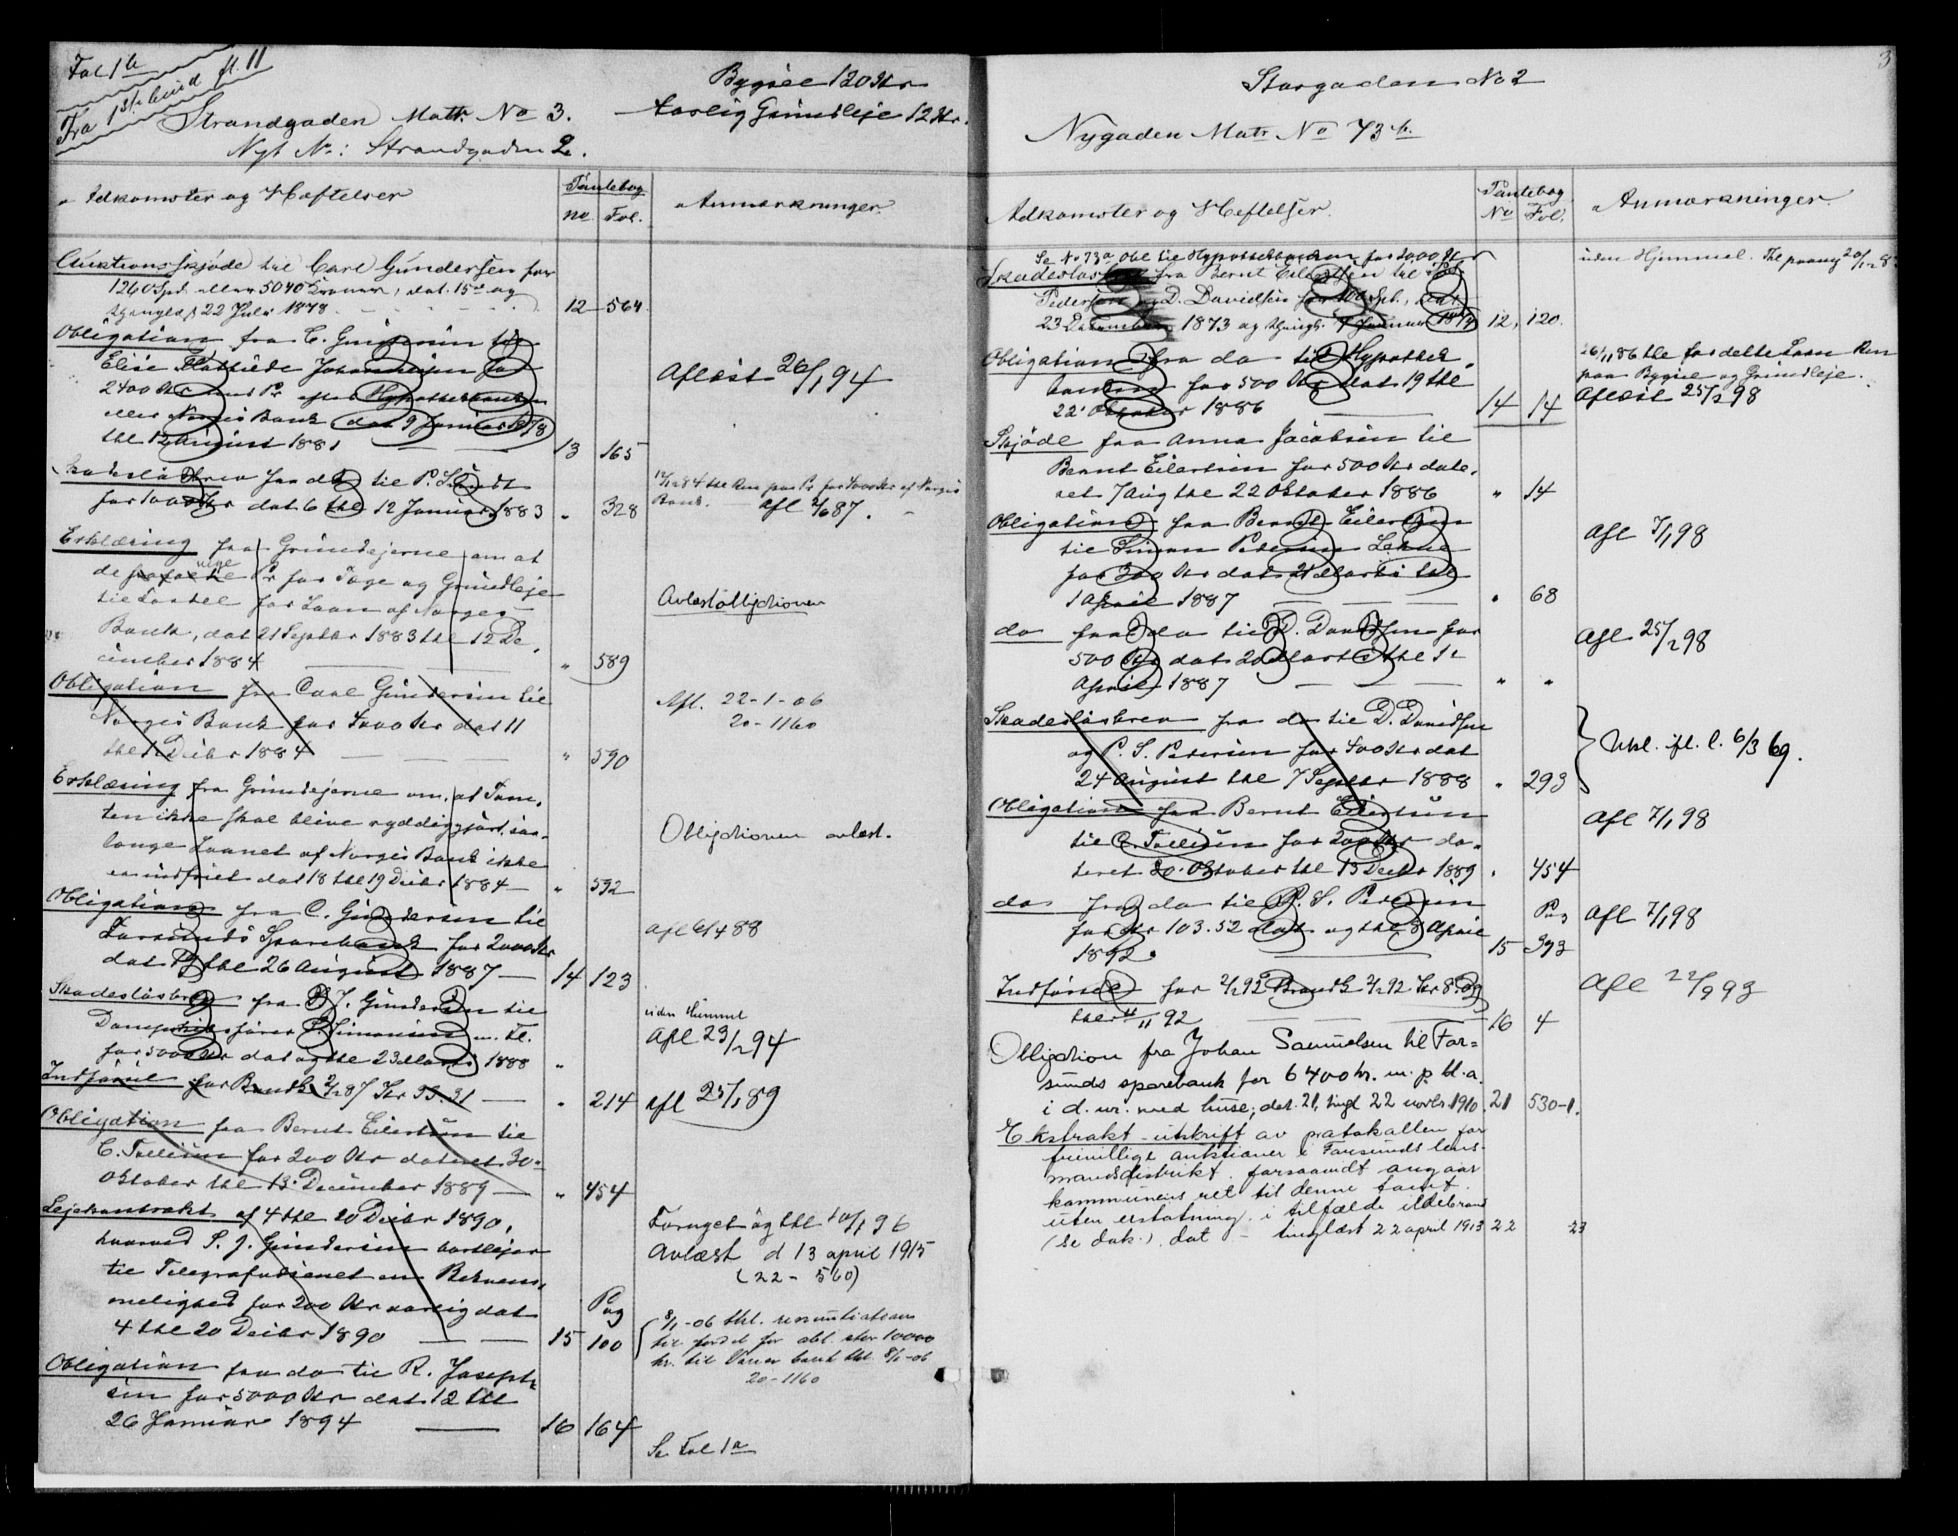 Fol 1b
Fra 1ste bind fl. 11
Strandgaden Matr. No 3.
Nyt No: Strandgaden 2.
Bygsel 120 Kr
Aarlig Grundleje 12 Kr.
Adkomster og Hæftelser
Pantebog
No Fol.
Anmærkninger.
Auktionsskjøde til Carl Gundersen for
1260 Spd. eller 5040 Kroner, dat. 15de og
thinglæst 22 Juli 1878 12 564
Obligation fra C. Gundersen til
Elise Johannesen for
2400 Kr med Pr. efter Hypothekbanken
eller Norges Bank dat 9 Januar 1878
thl 12 August 1881 13 165
Afløst 26/1 94
Skadesløsbrev fra do til P. Lundt
for 1000 Kr dat 6 thl 12 Januar 1883 " 328
thl Ren paa Pr for 5000 Kr af Norges
Bank. Afl 2/6 87.
Erklæring fra Grundejerne om at
de vige Pr for Tage og Grundleje
til Fordel for Laan af Norges
Bank, dat 21 Septbr 1883 thl 12 De-
cember 1884 " 589
Avløst obligationen
Obligation fra Carl Gundersen til
Norges Bank for 5000 Kr dat 11
thl Decbr 1884 " 590
Afl. 22-1-06
20-1160
Erklæring fra Grundejerne om, at Tom-
ten ikke skal blive ryddiggjort, saa-
længe Laanet af Norges Bank ikke
er indfriet dat 18 thl 19 Decbr 1884 " 592
Obligationen avløst.
Obligation fra C. Gundersen til
Farsunds Sparebank for 2000 Kr
dat 19 thl 26 August 1887 14 123
Afl 6/4 88
Skadesløsbrev fra S. J. Gundersen til
Dampskibsfører S. Simonsen m. Fl.
for 5000 Kr dat og thl 23 Marts 1888 "
uden Hjemmel
Afl 23/2 94
Indførsel for Brandk 2/2 87 Kr 33.31 " 214
afl 25/1 89
Obligation fra Bernt Eilertsen til
C. Tollisen for 200 Kr dateret 30-
Oktober thl 13. December 1889 " 454
Lejekontrakt af 4 thl 20 Decbr 1890,
hvorved S. J. Gundersen bortlejer
til Telegrafvæsenet en Bekvem-
melighed for 200 Kr aarlig dat
4 thl 20 Decbr 1890 15 Pag 100
Fornyet og thl 10/1 96
Avlæst d 13 april 1915
(22 - 560)
Obligation fra do til R. Joseph-
sen for 5000 Kr dat 12 thl
26 Januar 1894 16 164
8/1 -06 thl. renuntiationen
til fordel for obl. stor 10000
kr. til bank thl. 8/1-06
20-1160
Se Fol 1a
3
Storgaden No 2
Nygaden Matr No 73b.
Adkomster og Heftelser.
Pantebog
No Fol.
Anmærkninger.
Se No 73a Obl til Hypothekbanken for 2000 Kr
Skadesløsbrev fra Bernt Eilertsen til P. S.
Pedersen og D. Davidsen for 100 Spd., dat.
23 December 1873 og thingl. 7 Januar 1874 12, 120.
uden Hjemmel.
Obligation fra do til Hypothek-
banken for 500 Kr dat 19 thl
22. Oktober 1886 14 14
26/11 86 thl for dette Laan Ren
paa Bygsel og Grundleje.
Afløst 25/2 98
Skjøde fra Anna Jacobsen til
Bernt Eilertsen for 500 Kr date-
ret 7 Aug thl 22 Oktober 1886 " 14
Obligation fra Bernt Eilertsen
til Simon Petersen Lehne
for 300 Kr dat 21 Marts thl
1 April 1887 " 68
Afl 7/1 98
do fra do til D. Davidsen for
500 Kr dat 20 Marts thl 1
April 1887 " "
Afl 25/2 98
Skadesløsbrev fra do til D. Davidsen
og P. S. Petersen for 400 Kr dat
24 August thl 7 Septbr 1888 " 293
Utsl. ifl. l. 6/3 69.
Obligation fra Bernt Eilertsen
til C. Tollisen for 200 Kr da-
teret 30. Oktober thl 13 Decbr 1889 " 454
Afl 7/1 98
do fra do til P. S. Petersen
for Kr 103.52 dat og thl 8 April
1892. 15 Pag 393
Afl 7/1 98
Indførsel for 2/2 92 Brandk 2/2 92 Kr 8.39
thl 4/11 92 16 4
Afl 22/9 93
Obligation fra Johan Samuelsen til Far-
sunds sparebank for 6400 kr. m. p. bl. a.
i d. nr. med huse; dat. 21, tingl 22 novbr. 1910. 21 530-1.
Ekstrakt-utskrift av protokollen for
frivillige auktioner i Farsunds lens-
mandsdistrikt forsaavidt angaar
kommunens ret til denne tomt
uten erstatning i tilfælde ildebrand
(se dok.). dat - tinglæst 22 april 1913 22 23